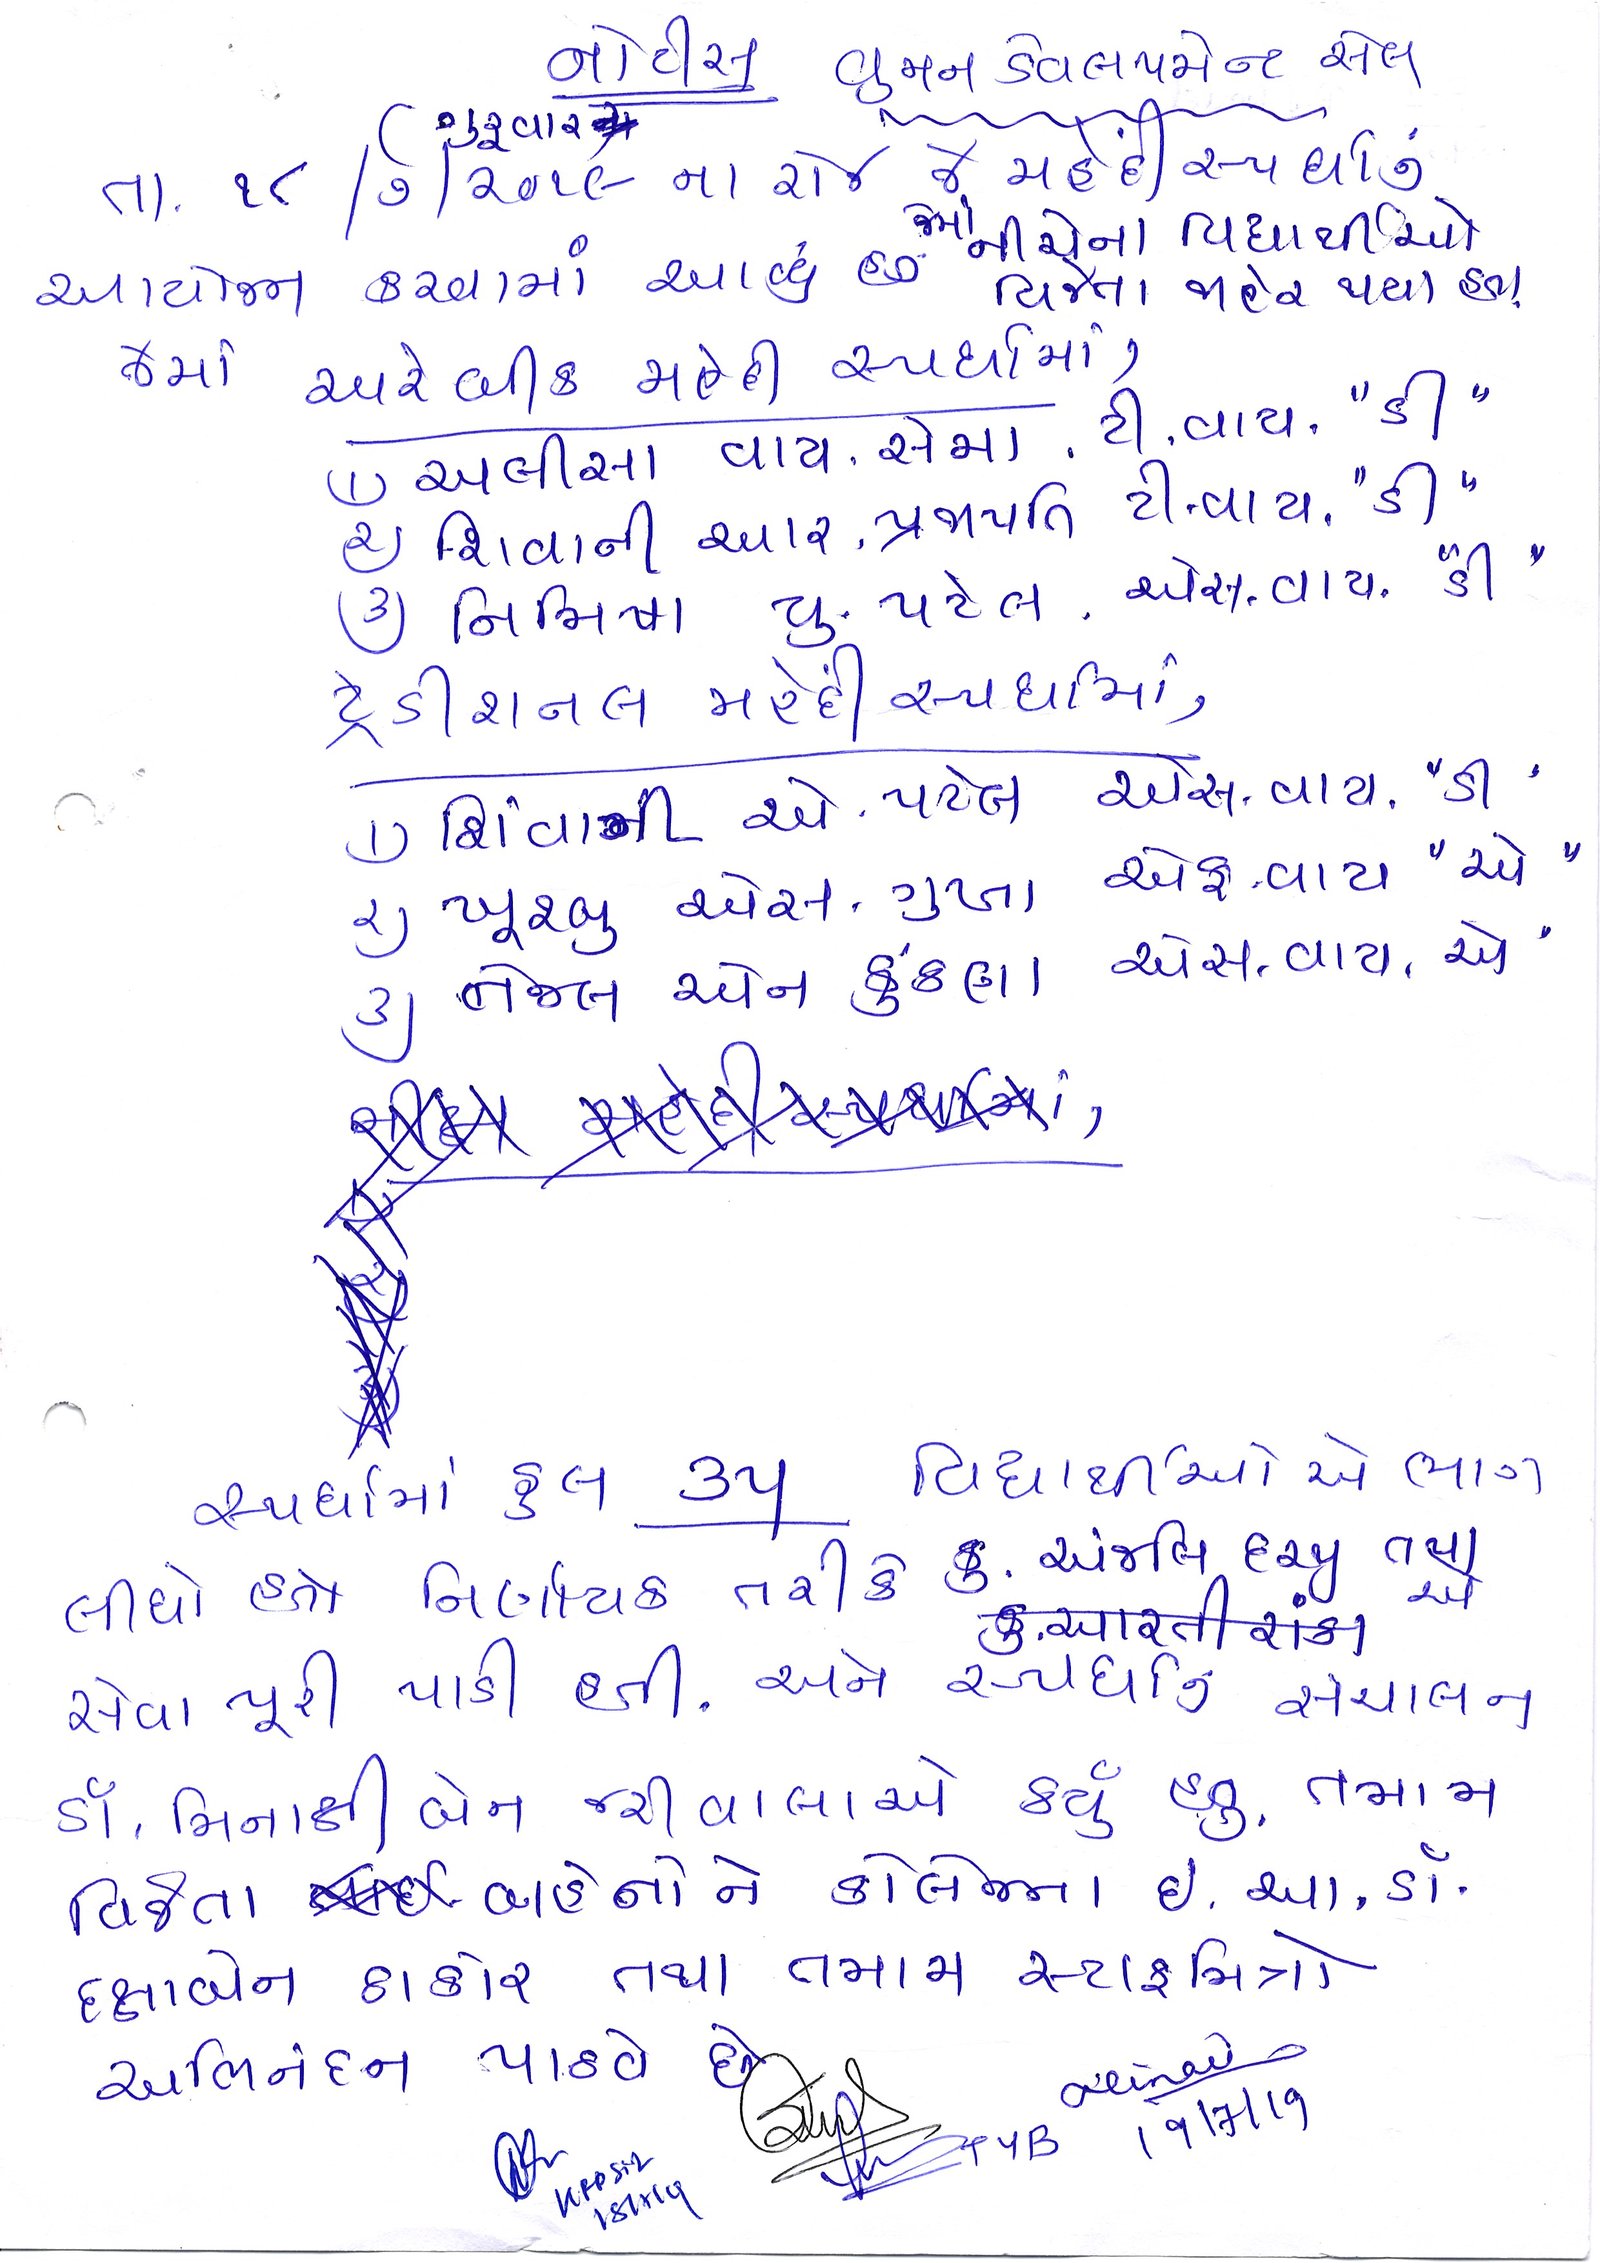 નોટીસ વુમન ડેવલપમેન્ટ સેલ
(ગુરૂવાર
તા. ૧૮/૭/૨૦૧૯ ના રોજ જે મહેદીં સ્પર્ધાનું
આયોજન કરવામાં આવ્યું હતું જેમાં નીચેના વિદ્યાર્થીઓ
વિજેતા જાહેર થયા હતા
જેમાં અરેબીક મહેદી સ્પર્ધામાં,
૧) અલીસા વાય. સેમા. ટી.વાય. "ડી"
૨) શિવાની આર. પ્રજાપતિ ટી.વાય. "ડી"
૩) નિમિષા યુ. પટેલ. એસ.વાય. "ડી"
ટ્રેડીશનલ મહેદીં સ્પર્ધામાં,
૧) શિવાની એ. પટેલ એસ.વાય. "ડી'
૨) ખૂશ્બુ એસ. ગુપ્તા એફ.વાય "એ"
૩) તેજલ એન કુંકણા એસ.વાય. એ'
મહેદી સ્પર્ધામાં,
સ્પર્ધામાં કુલ ૩૫ વિદ્યાર્થીઓ એ ભાગ
લીધો હતો નિર્ણાયક તરીકે કુ. અંજલિ દરજી તથા
કુ. આરતી રાંકા એ
સેવા પૂરી પાડી હતી. અને સ્પર્ધાનું સંચાલન
ડૉ. મિનાક્ષીબેન જરીવાલાએ કર્યું હતું. તમામ
વિજેતા બહેનોને કોલેજના ઇ. આ. ડૉ.
દક્ષાબેન ઠાકોર તથા તમામ સ્ટાફમિત્રો
અભિનંદન પાઠવે છે
TYB 19/7/19